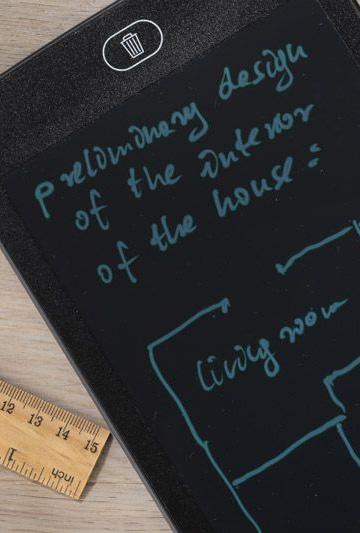 Preliminary design
of the interior
of the house:
living room
12 13 14 15
1 inch